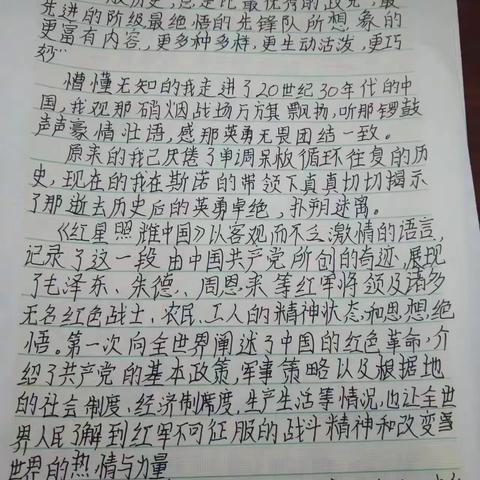 般历史，总是比最优秀的政党，最
先进的阶级最绝悟的先锋队所想象的
更富有内容，更多种多样，更生动活泼，更巧
妙”
懵懂无知的我走进了20世纪30年代的中
国，我观那硝烟战场万旗飘扬，听那锣鼓
声声豪情壮语，感那英勇无畏团结一致。
原来的我已厌倦了单调呆板循环往复的历
史，现在的我在斯诺的带领下真真切切揭示
了那逝去历史后的英勇卓绝，扑朔迷离。
《红星照耀中国》以客观而不乏激情的语言，
记录了这一段由中国共产党所创的奇迹，展现
了毛泽东、朱德、周恩来等红军将领及诸多
无名红色战士、农民、工人的精神状态和思想绝
悟。第一次向全世界阐述了中国的红色革命，介
绍了共产党的基本政策，军事策略以及根据地
的社会制度、经济制度，生产生活等情况，也让全世
界人民了解到红军不可征服的战斗精神和改变
世界的热情与力量